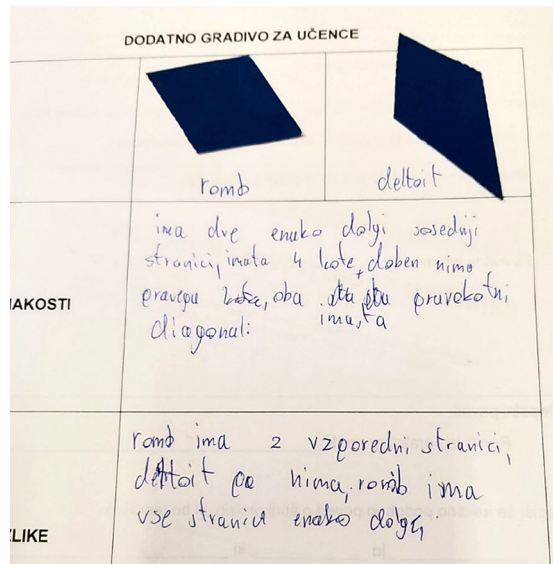 DODATNO GRADIVO ZA UČENCE
romb
deltoit
IAKOSTI
ima dve enako dolgi sosednji
stranici, imata 4 kote, doben nima
pravega kota, oba pravokotni
imasta
diagonali
ZLIKE
romb ima 2 vzporedni stranici,
deltoit pa nima, romb ima
vse stranice enako dolge,